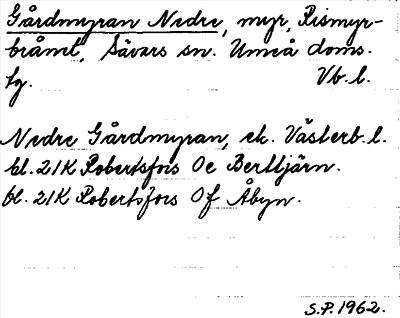 Gårdmyran Nedre, myr, Rismyr-
bråmt, Sävars sn. Umeå doms.
hg. Vb. l.
Nedre Gårdmyran, ek. Västerb. l.
bl. 21K Robertsfors Oe Bertljärn.
bl. 21K Robertsfors Of Åbyn.
S.P. 1962.